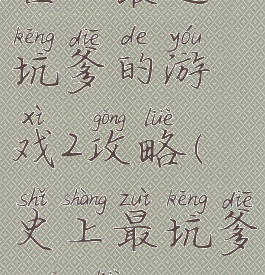 kēng diē de yóu
坑爹的游
xì gōng lüè
戏2攻略(
shǐ shàng zuì kēng diē
史上最坑爹